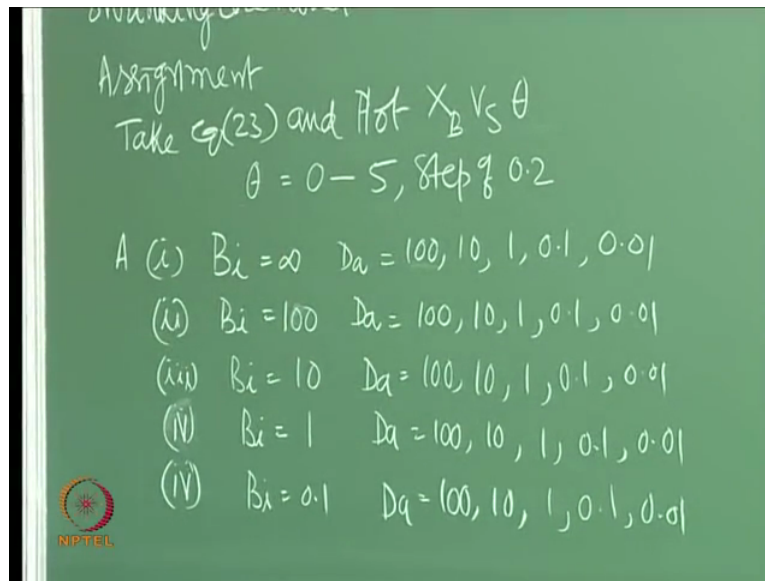 Assignment
Take Eq(23) and Plot X_B Vs θ
θ = 0 – 5, Step of 0.2
A (i) Bi = ∞ Da = 100, 10, 1, 0.1, 0.01
(ii) Bi = 100 Da = 100, 10, 1, 0.1, 0.01
(iii) Bi = 10 Da = 100, 10, 1, 0.1, 0.01
(iv) Bi = 1 Da = 100, 10, 1, 0.1, 0.01
(iv) Bi = 0.1 Da = 100, 10, 1, 0.1, 0.01
NPTEL